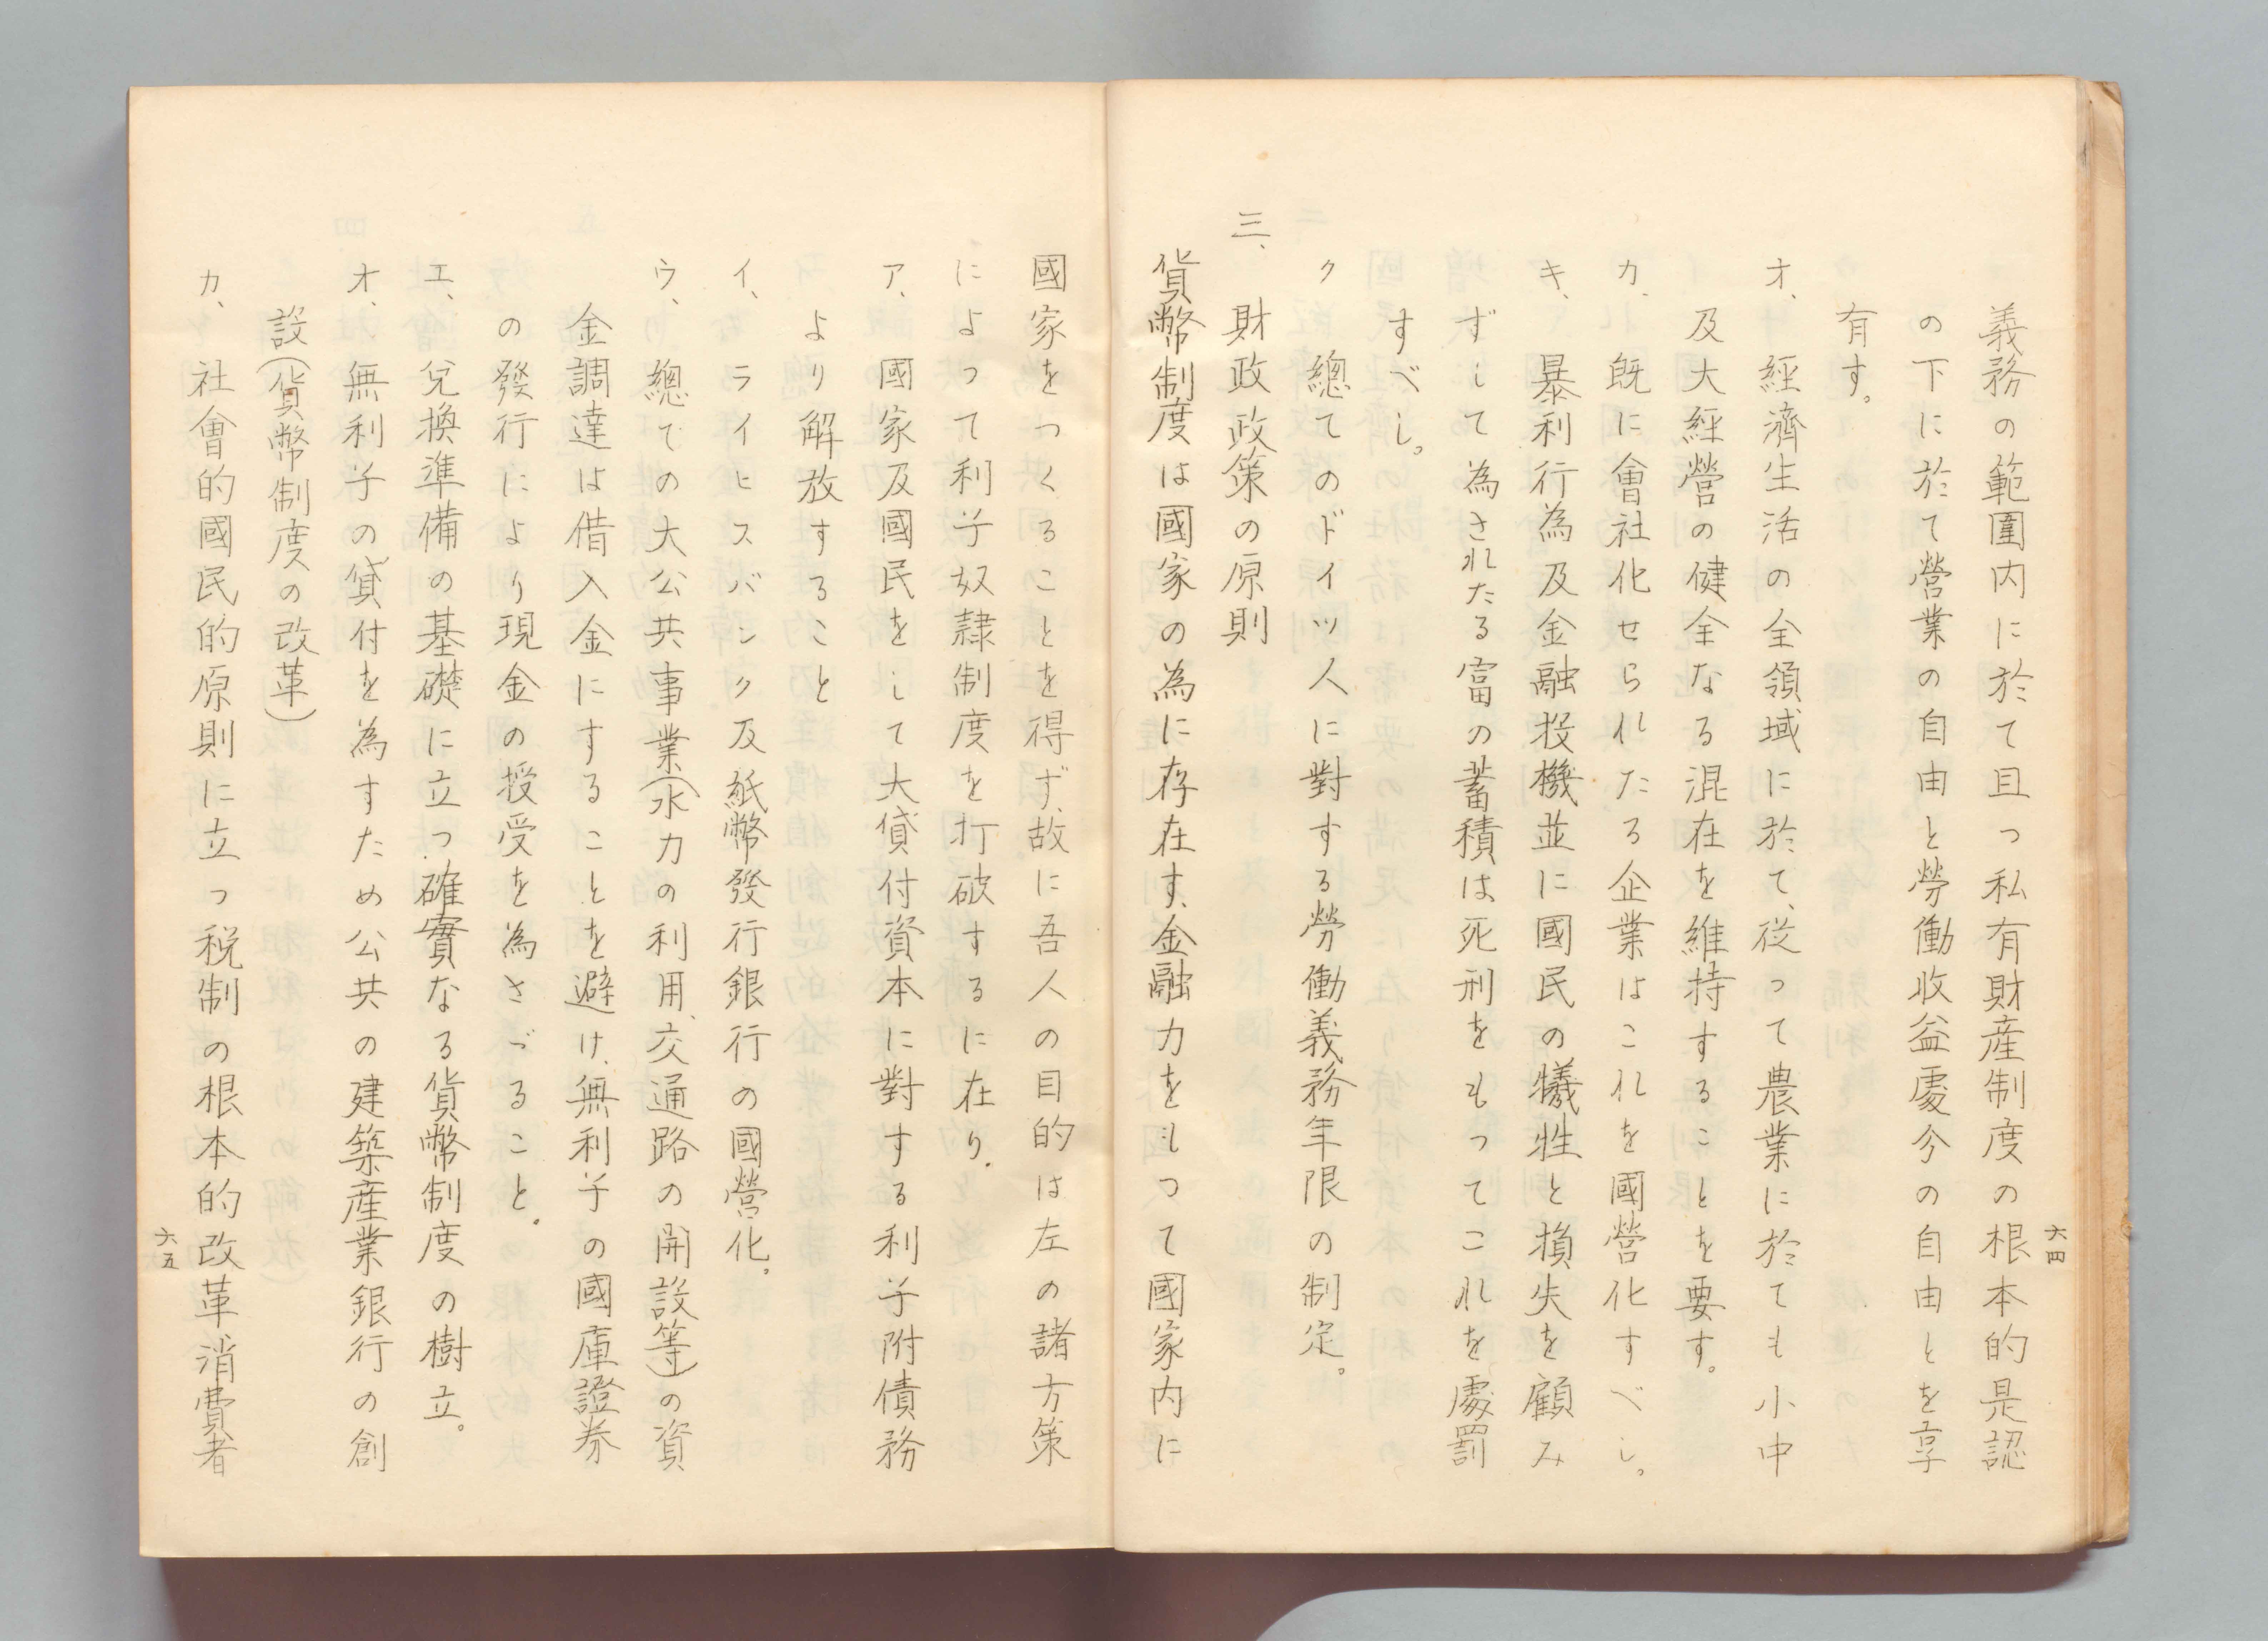 六四
義務の範圍内に於て且つ私有財産制度の根本的是認
の下に於て營業の自由と勞働收益處分の自由とを享
有す。
オ、經濟生活の全領域に於て、從って農業に於ても小中
及大經營の健全なる混在を維持することを要す。
カ、既に會社化せられたる企業はこれを國營化すべし。
キ、暴利行為及金融投機並に國民の犠牲と損失を顧み
ずして為されたる富の蓄積は死刑をもってこれを處罰
すべし。
ク總てのドイツ人に對する勞働義務年限の制定。
三、財政政策の原則
貨幣制度は國家の為に存在す、金融力をもつて國家内に
國家をつくることを得ず、故に吾人の目的は左の諸方策
によって利子奴隷制度を打破するに在り.
ア、國家及國民をして大貸付資本に對する利子附債務
より解放すること
イ、ライヒスバンク及紙幣發行銀行の國營化。
ウ、總ての大公共事業(水力の利用、交通路の開設等)の資
金調達は借入金にすることを避け、無利子の國庫證券
の發行により現金の授受を為さゞること。
エ、兌換準備の基礎に立つ確實なる貨幣制度の樹立。
オ、無利子の貸付を為すため公共の建築産業銀行の創
設(貨幣制度の改革)
カ、社會的國民的原則に立つ税制の根本的改革消費者
六五